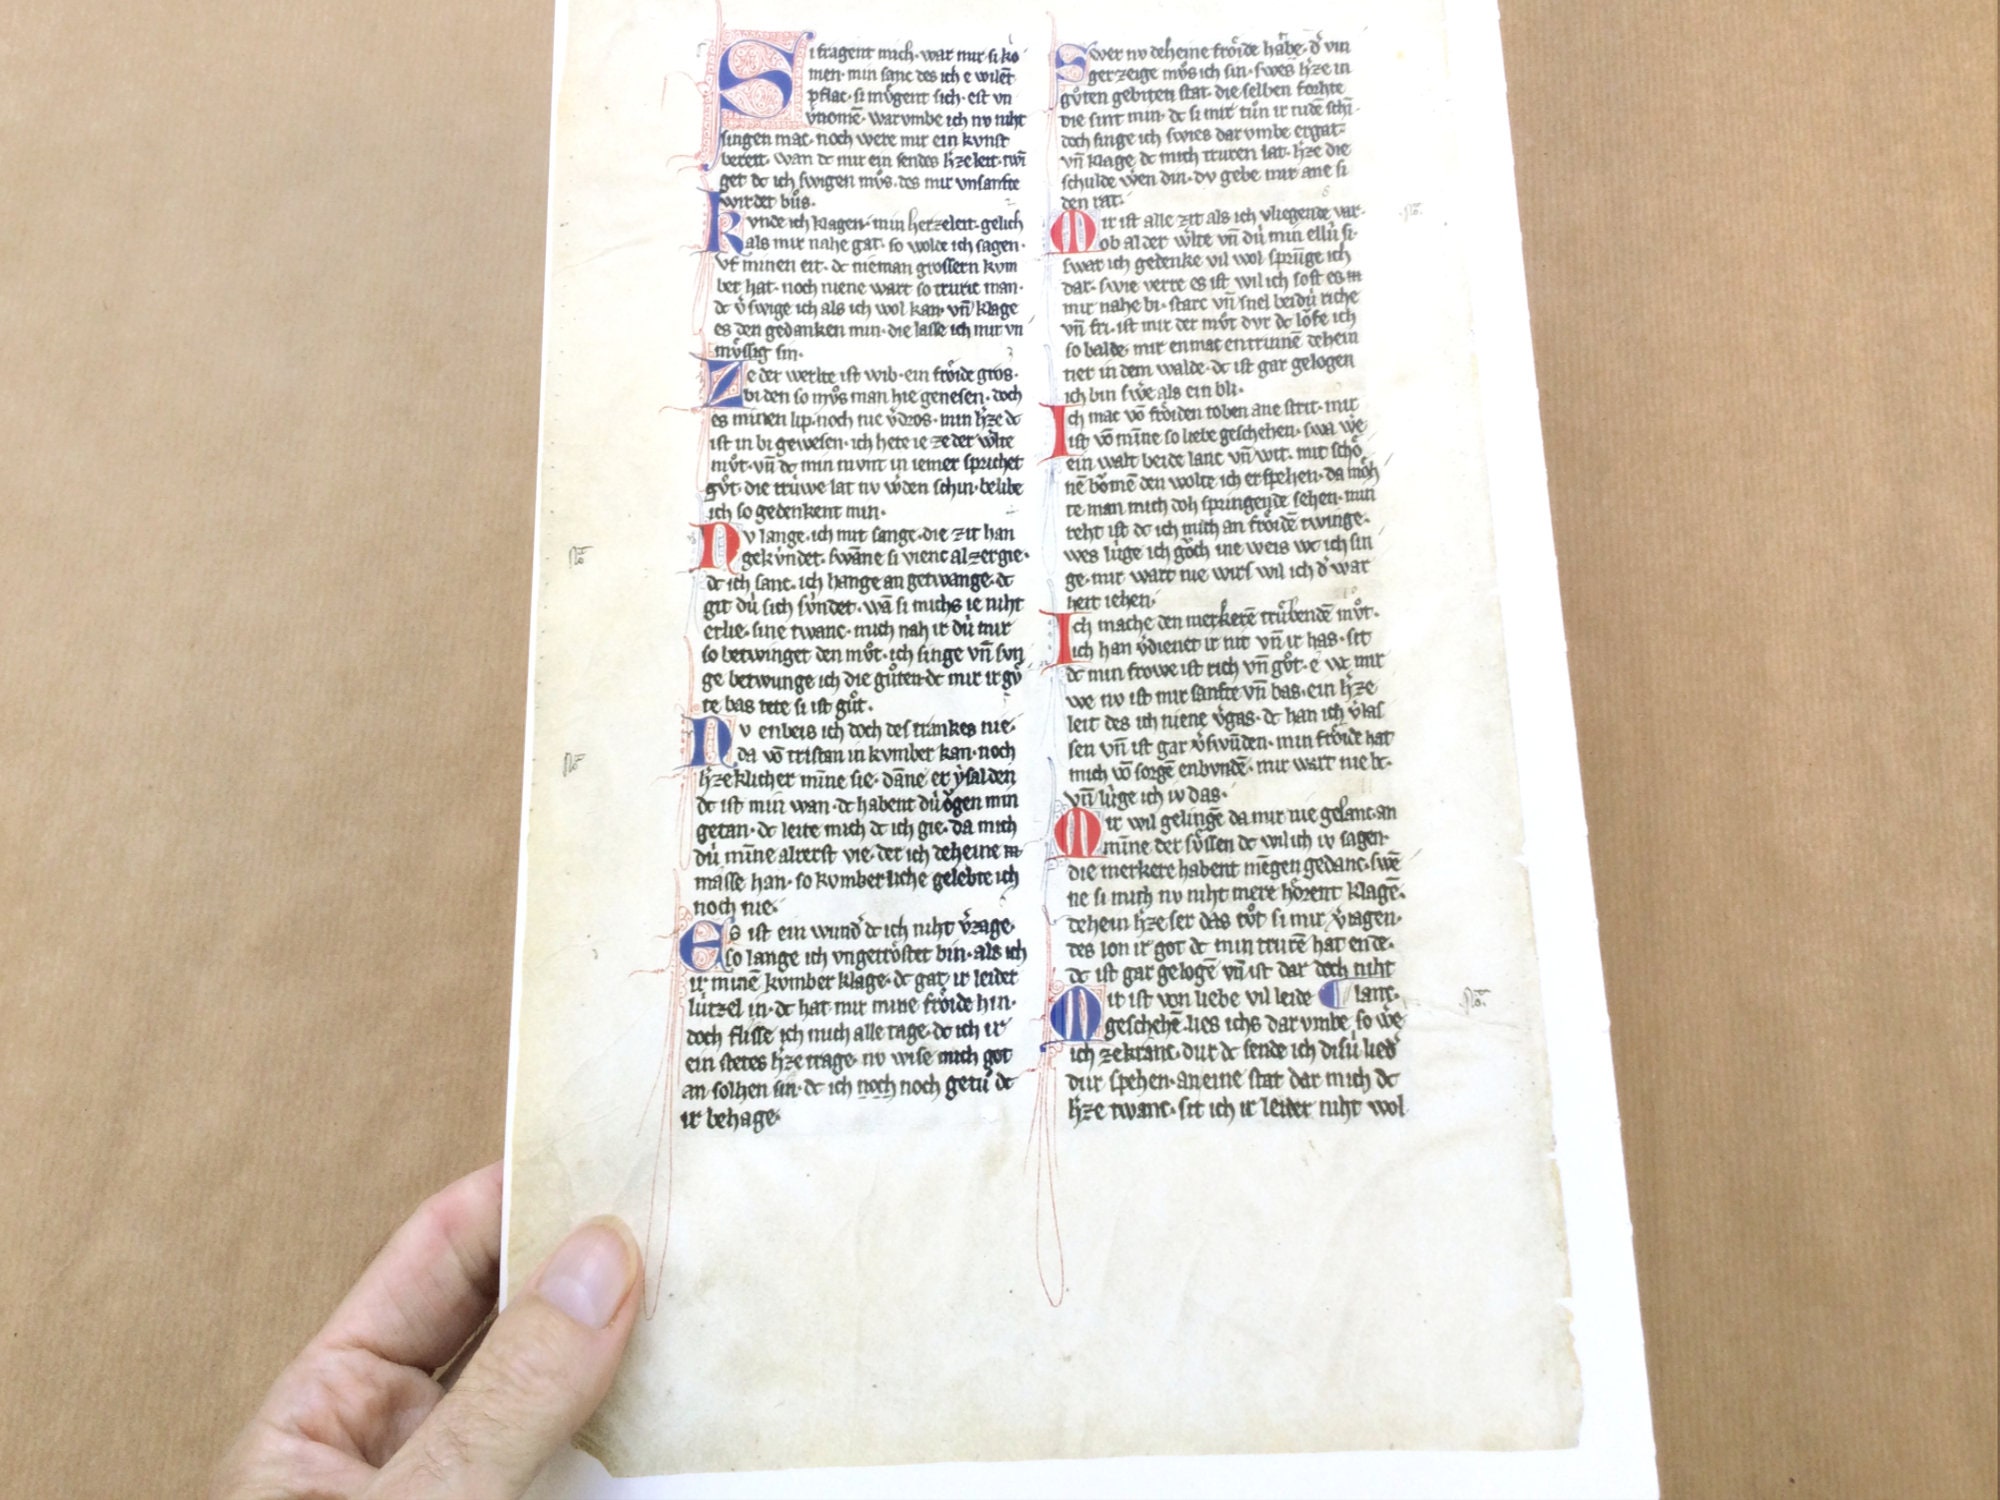 Si fragent mich· war mir si ko
men· min sanc des ich e wilent
pflac· si můgent sich· est vn
v̓nomē· warvmbe ich nv niht
singen mac· noch were mir ein kvnst
bereit· wan dc mir ein sendes h̓ze leit· twī
get dc ich swigen můs· des mir vnsanfte
wirdet bůs·
Kvnde ich klagen· min herzeleit· gelich
als mir nahe gat· so wolde ich sagen·
vf minen eit· dc nieman grossern kvm
ber hat· noch niene wart so truric man·
dc v̓swige ich als ich wol kan· vn̄ klage
es den gedanken min· die lasse ich mir vn
mv̊ssig sin·
Ze der werlte ist wib· ein frȯide gros·
bi den so mv̊s man hie genesen· doch
es minen lip· noch nie v̓dros· min h̓ze dc
ist in bi gewesen· ich hete ie ze der w̓lte
mv̊t· vn̄ dc min mvnt in iemer sprichet
gv̊t· die trúwe lat nv w̓den schin· belibe
ich so gedenkent min·
Nv lange· ich mit sange· die zit han
gekv́ndet· swāne si vienc al zergie·
dc ich sanc· ich hange an getwange· dc
git dú sich sv́ndet· wā si michs ie niht
erlie· sine twanc· mich nah ir dú mir
so betwinget den mv̊t· ich singe vn̄ svn
ge betwunge ich die gůten· dc mir ir gv̊
te bas tete si ist gůt·
Nv enbeis ich doch des trankes nie·
da vō tristan in kvmber kan· noch
h̓zeklicher mīne sie· dāne er v̓salden
dc ist min wan· dc habent dú ȯgen min
getan· dc leite mich dc ich gie· da mich
dú mīne alrerst vie· der ich deheine
masse han· so kvmberliche gelebte ich
noch nie·
Es ist ein wund̓ dc ich niht v̓zage·
so lange ich vngetrȯstet bin· als ich
ir minē kvmber klage· dc gat ir leider
lútzel in· dc hat mir mine frȯide hin·
doch flisse ich mich alle tage· dc ich ir
ein stetes h̓ze trage· nv wise mich got
an solhen sin· dc ich noch noch getů dc
ir behage·
Swer nv deheine frȯide habe· d̓ vin
ger zeige mv̊s ich sin· swes h̓ze in
gůten gebiten stat· die selben forhte
die sint min· dc si mir tůn ir nidē schī
doch singe ich swies darvmbe ergat·
vn̄ klage dc mich truren lat· h̓ze die
schulde wen din· dv gebe mir ane si
den rat·
Mir ist alle zit als ich vliegende var·
ob al der w̓lte vn̄ dú min ellú si·
swar ich gedenke vil wol sprūge ich
dar· swie verre es ist wil ich sost es
mir nahe bi· starc vn̄ snel beidú riche
vn̄ fri· ist mir der mv̊t dvr dc lȯfe ich
so balde· mir enmac entrinnē dehein
tier in dem walde· dc ist gar gelogen
ich bin sw̓e als ein bli·
Ich mac vō frȯiden toben ane strit· mir
ist vō mīne so liebe geschehen· swa we
ein walt beide lanc vn̄ wit· mit schȯ
nē bȯmē den wolte ich erspehen· da mȯh
te man mich doh springende sehen· min
reht ist dc ich mich an frȯidē twinge·
wes lúge ich gȯch ine weis wc ich sin
ge· mir wart nie wirs wil ich d̓ war
heit iehen·
Ich mache den merkerē trůbendē mv̊t·
ich han v̓dienet ir nit vn̄ ir has· sit
dc min frowe ist rich vn̄ gv̊t· e wc mir
we nv ist mir sanfte vn̄ bas· ein h̓ze
leit des ich niene v̓gas· dc han ich v̓las
sen vn̄ ist gar v̓swūden· min frȯide hat
mich vō sorgē enbvndē· mir wart nie bc·
vn̄ lúge ich iv das·
Mir wil gelingē da mir nie gelanc an
mīne der sv̊ssen dc wil ich iv sagen·
die merkere habent mēgen gedanc· swē
ne si mich nv niht mere hȯrent klagē·
dehein h̓ze ser das tv̊t si mir v̓tragen·
des lon ir got dc min trurē hat ende·
dc ist gar gelogē vn̄ ist dar doch niht
Mir ist von liebe vil leide ¶ lanc·
geschehē· lies ichs darvmbe so we
ich zekranc· dur dc sende ich disú lied̓
dur spehen· an eine stat dar mich dc
h̓ze twanc· sit ich ir leider niht wol